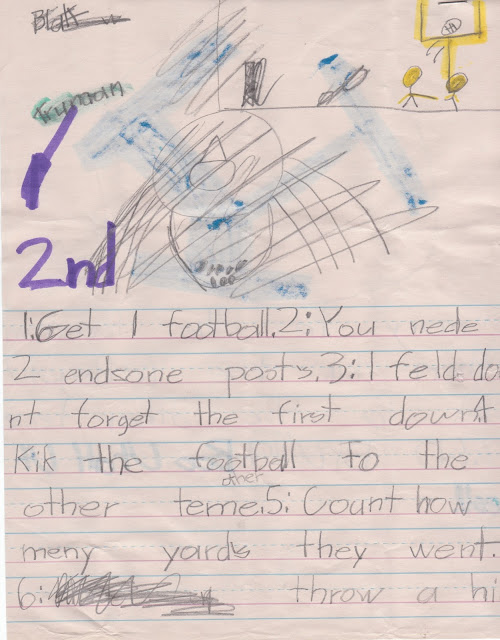 Truman
2nd
1:Get 1 football.2:You nede
2 endsone posts.3:1 feld.do
nt forget the first down.4
Kik the football to the
other
other teme.5: Count how
meny yards they went.
6: throw a hi